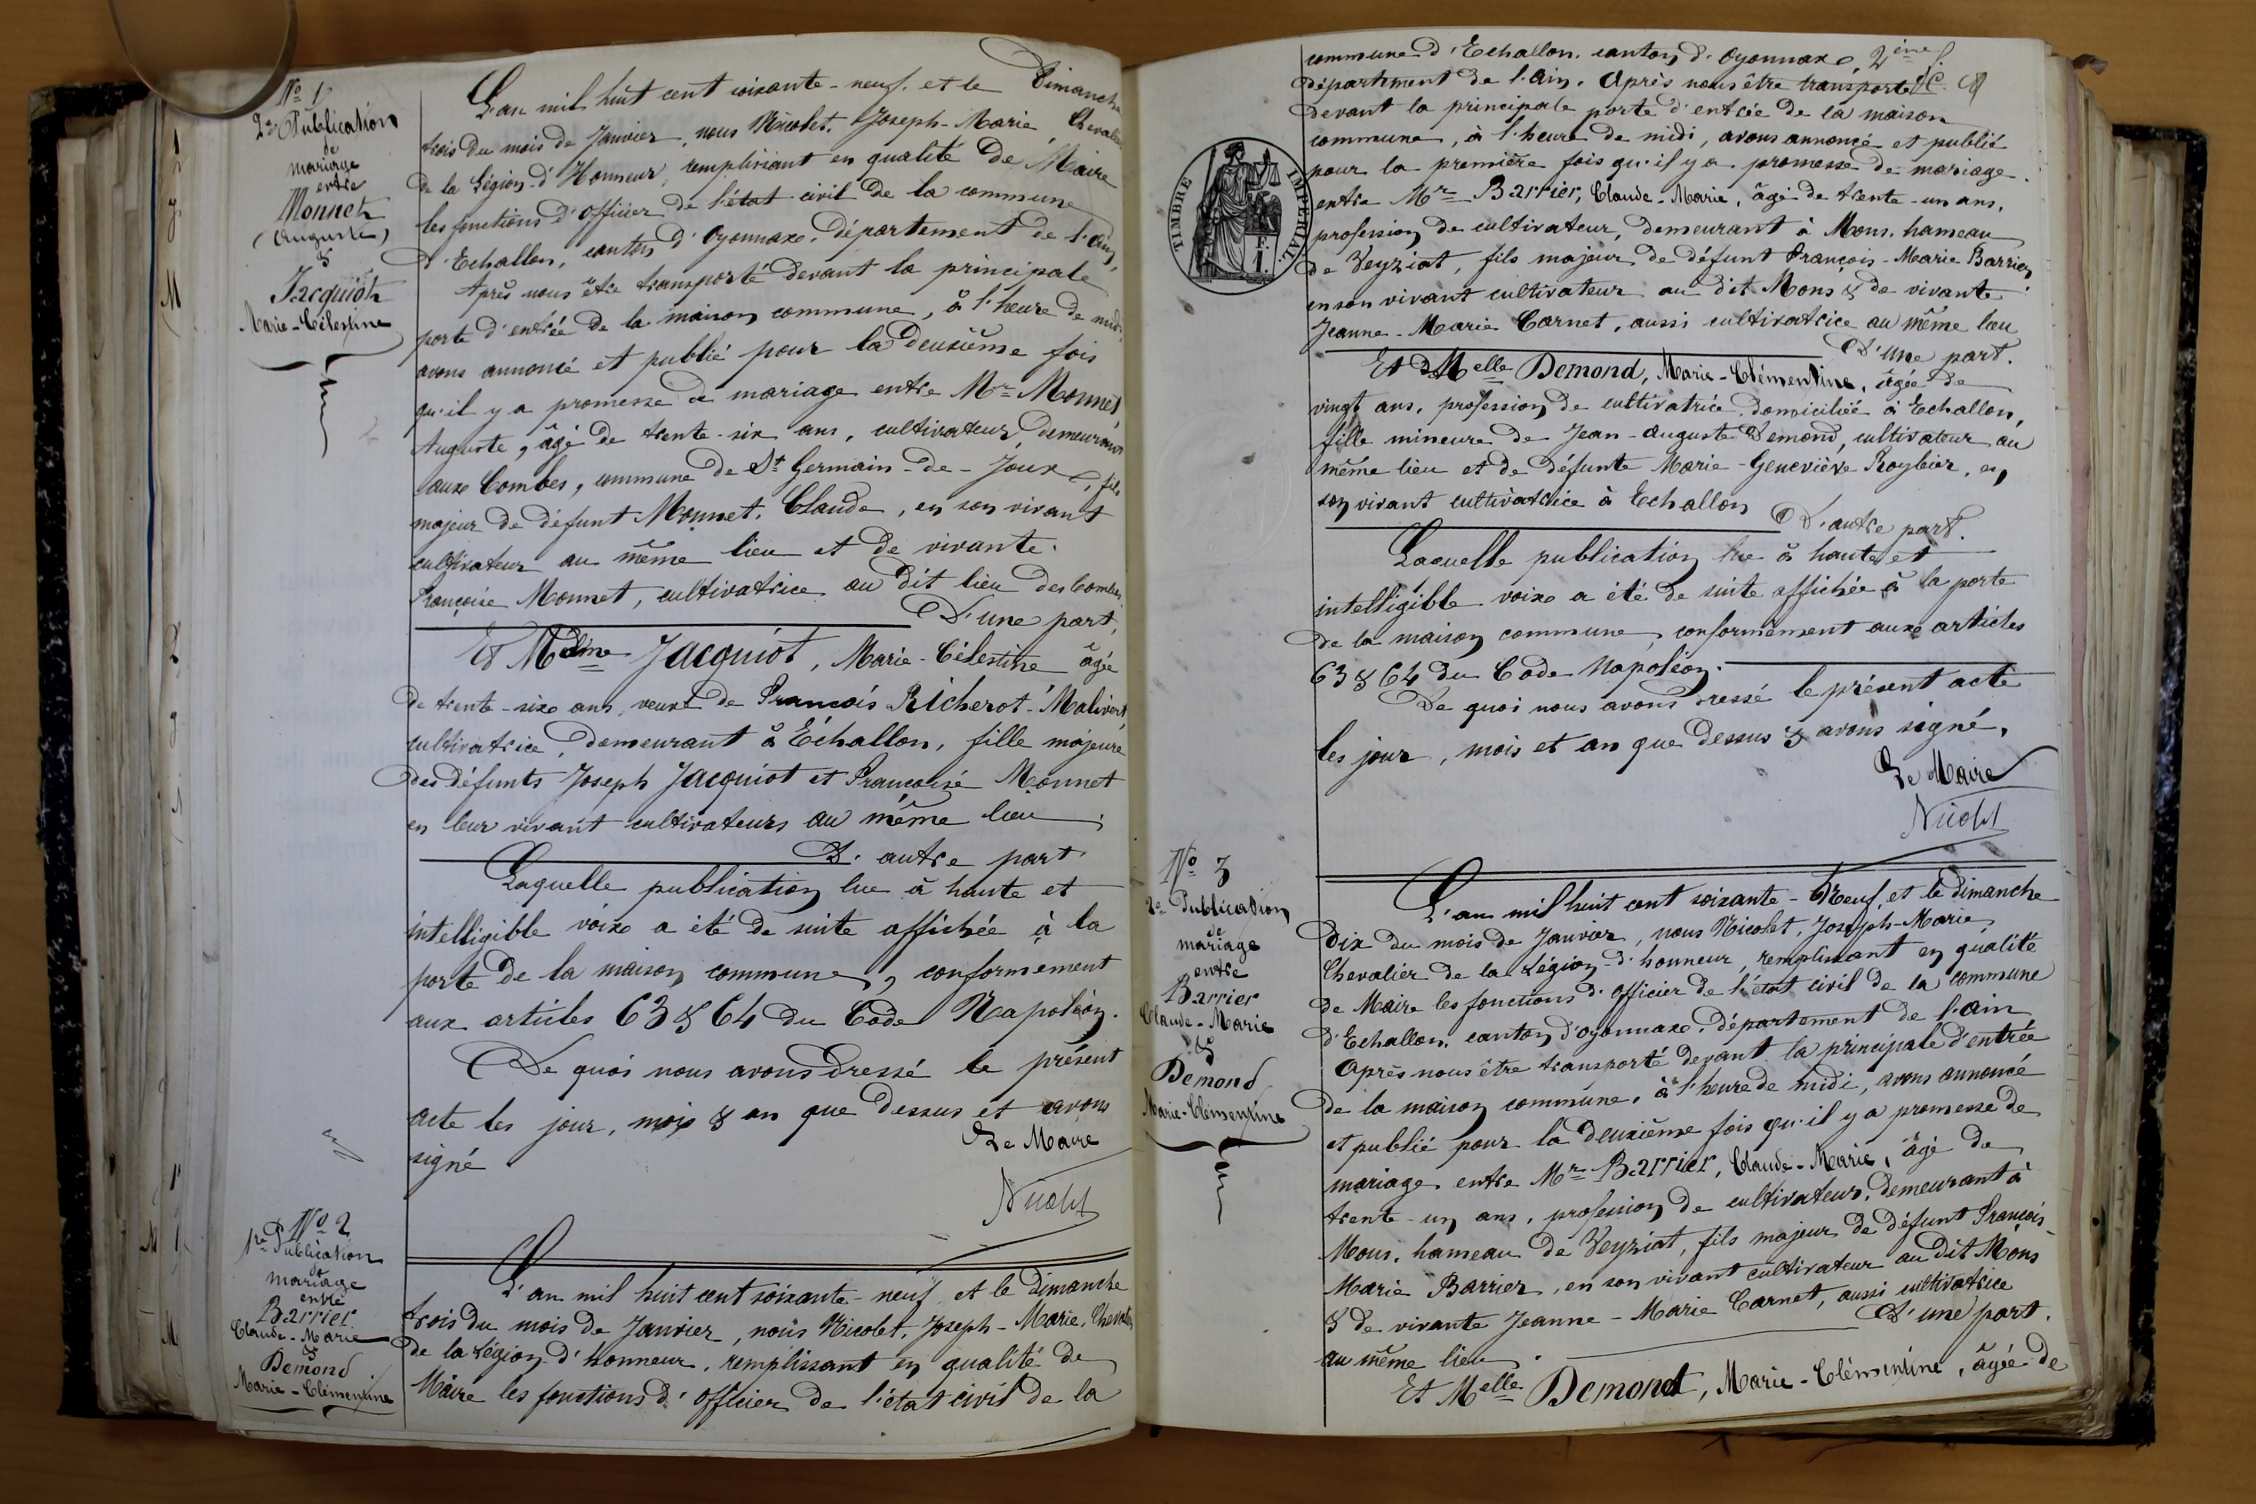 No 1
2e Publication
de
mariage
entre
Monnet
(Auguste)
&
Jacquiot
Marie-Célestine
L'an mil huit cent soixante-neuf, et le Dimanche
trois du mois de Janvier, nous Nicolet, Joseph-Marie, Chevalier
de la Légion d'Honneur, remplissant en qualité de Maire
les fonctions d'officier de l'état civil de la commune
d'Echallon, canton d'Oyonnax, département de l'Ain,
Après nous être transporté devant la principale
porte d'entrée de la maison commune, à l'heure de midi,
avons annoncé et publié pour la deuxième fois
qu'il y a promesse de mariage entre Mr Monnet
Auguste, âgé de trente-six ans, cultivateur, demeurant
aux Combes, commune de St Germain-de-Joux, fils
majeur de défunt Monnet, Claude, en son vivant
cultivateur au même lieu et de vivante
Françoise Monnet, cultivatrice au dit lieu des Combes
D'une part,
Et Mdme Jacquiot, Marie-Célestine âgée
de trente-six ans, veuve de François Richerot-Malivert,
cultivatrice, demeurant à Échallon, fille majeure
des défunts Joseph Jacquiot et Françoise Monnet
en leur vivant cultivateurs au même lieu
D'autre part.
Laquelle publication lue à haute et
intelligible voix a été de suite affichée à la
porte de la maison commune, conformément
aux articles 63 & 64 du Code Napoléon.
De quoi nous avons dressé le présent
acte les jour, mois & an que dessus et avons
signé
Le Maire
Nicolet
No 2
1re Publication
de
mariage
entre
Barrier
Claude-Marie
&
Demond
Marie-Clémentine
L'an mil huit cent soixante-neuf et le Dimanche
trois du mois de Janvier, nous Nicolet, Joseph-Marie, Chevalier
de la Légion d'honneur, remplissant en qualité de
Maire les fonctions d'officier de l'état civil de la
commune d'Echallon, canton d'Oyonnax, 2ème f.
département de l'Ain. Après nous être transporté
devant la principale porte d'entrée de la maison
commune, à l'heure de midi, avons annoncé et publié
pour la première fois qu'il y a promesse de mariage
entre Mr Barrier, Claude-Marie, âgé de trente-un ans,
profession de cultivateur, demeurant à Mons, hameau
de Veyziat, fils majeur de défunt François-Marie Barrier,
en son vivant cultivateur au dit Mons & de vivante
Jeanne-Marie Carnet, aussi cultivatrice au même lieu
D'une part.
Et Melle Demond, Marie-Clémentine, âgée de
vingt ans, profession de cultivatrice domiciliée à Echallon,
fille mineure de Jean-Auguste Demond, cultivateur au
même lieu et de défunte Marie-Geneviève Roybier, en
son vivant cultivatrice à Echallon
D'autre part.
Laquelle publication lue à haute et
intelligible voix a été de suite affichée à la porte
de la maison commune, conformément aux articles
63 & 64 du Code Napoléon.
De quoi nous avons dressé le présent acte
les jour, mois et an que dessus & avons signé,
Le Maire
Nicolet
TIMBRE IMPERIAL
1 F.
No 3
2e Publication
de
mariage
entre
Barrier
Claude-Marie
&
Demond
Marie-Clémentine
L'an mil huit cent soixante-Neuf, et le dimanche
dix du mois de Janvier, nous Nicolet, Joseph-Marie
Chevalier de la Légion d'honneur, remplissant en qualité
de Maire les fonctions d'officier de l'état civil de la commune
d'Echallon, canton d'oyonnax, département de l'ain
Après nous être transporté devant la principale d'entrée
de la maison commune, à l'heure de midi, avons annoncé
et publié pour la deuxième fois qu'il y a promesse de
mariage entre Mr Barrier, Claude-Marie, âgé de
trente-un ans, profession de cultivateur, demeurant à
Mons, hameau de Veyziat, fils majeur de défunt François-
Marie Barrier, en son vivant cultivateur au dit Mons
& de vivante Jeanne-Marie Carnet, aussi cultivatrice
au même lieu. D'une part.
Et Melle Demond, Marie-Clémentine, âgée de